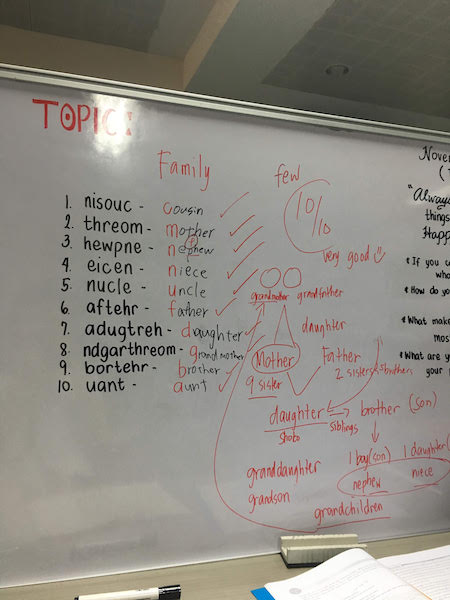 TOPIC:
Family
1. nisouc - cousin
2. threom - mother
3. hewpne - nephew
4. eicen - niece
5. nucle - uncle
6. aftehr - father
7. adugtreh - daughter
8. ndgarthreom - grandmother
9. bortehr - brother
10. uant - aunt
few
10/10
very good
grandmother grandfather
daughter
Mother Father
9 sister 2 sisters 5 brothers
daughter brother (son)
shobo siblings
granddaughter 1 boy (son) 1 daughter
grandson nephew niece
grandchildren
Nove
"Always
things
Happ
* If you c
wha
* How do yo
* What make
most
* What are y
your